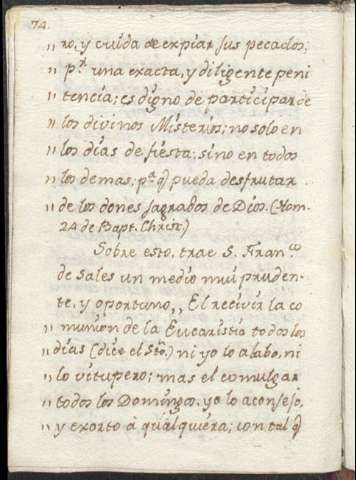 74.
,, ro, y cuida de expiar sus pecados,
,, p.r una exacta, y diligente peni
,, tencia; es digno de participar de
,, los divinos Misterios; no solo en
,, los dias de fiesta, sino en todos
,, los demas; p.a q̃ pueda desfrutar
,, de los dones sagrados de Dios. (Hom.
24 de Bapt. Christ.)
Sobre esto, trae S. Fran.co
de Sales un medio mui pruden-
te, y oportuno ,, El recivir la co
,, munion de la Eucaristia todos los
,, dias (dice el Sto.) ni yo lo alabo, ni
,, lo vitupero; mas el comulgar
,, todos los Domingos, yo lo aconsejo,
,, y exorto à qualquiera; con tal q̃